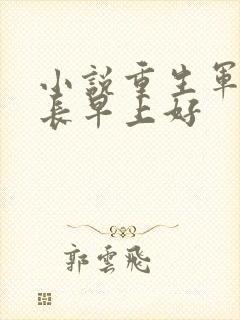 小説重生軍
長早上好
郭雲飛